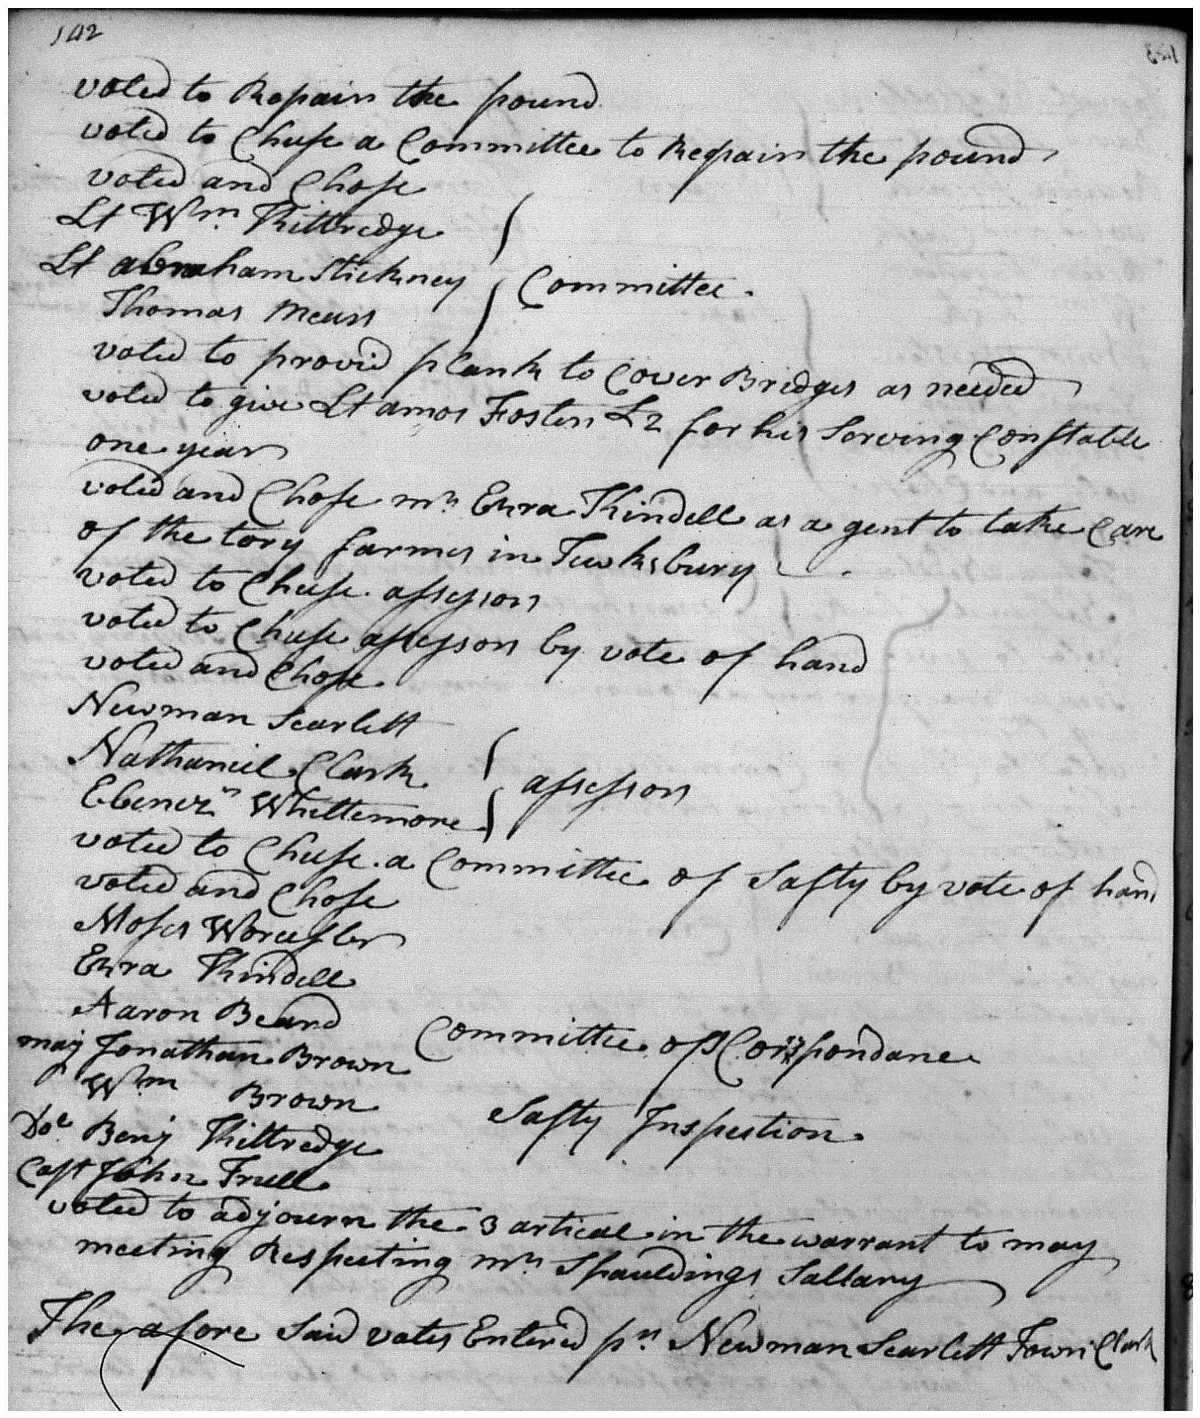 142
voted to Repair the pound
voted to Chuse a Committee to Repair the pound
voted and Chose
Lt Wm Kittredge
Lt abraham Stickney
Committee
Thomas Mears
voted to provid plank to Cover Bridges as needed
voted to give Lt amos Foster £2 for his Serving Constable
one year
voted and Chose mr Ezra Kindell as a gent to take Care
of the tory farmes in Tewksbury
voted to Chuse assessors
voted to Chuse assessors by vote of hand
voted and Chose
Newman Scarlett
Nathaniel Clark
assessors
Ebenezr Whittemore
voted to Chuse a Committee of Safty by vote of hand
voted and Chose
Moses Worcester
Ezra Kindell
Aaron Beard
Committee of Corispondance
maj Jonathan Brown
Wm Brown
Safty Inspection
Doc Benj Kittredge
Capt John Trull
voted to adjourn the 3 artical in the warrant to may
meeting Respecting mr Spauldings Sallary
The afore Said votes Entered pr Newman Scarlett Town Clark